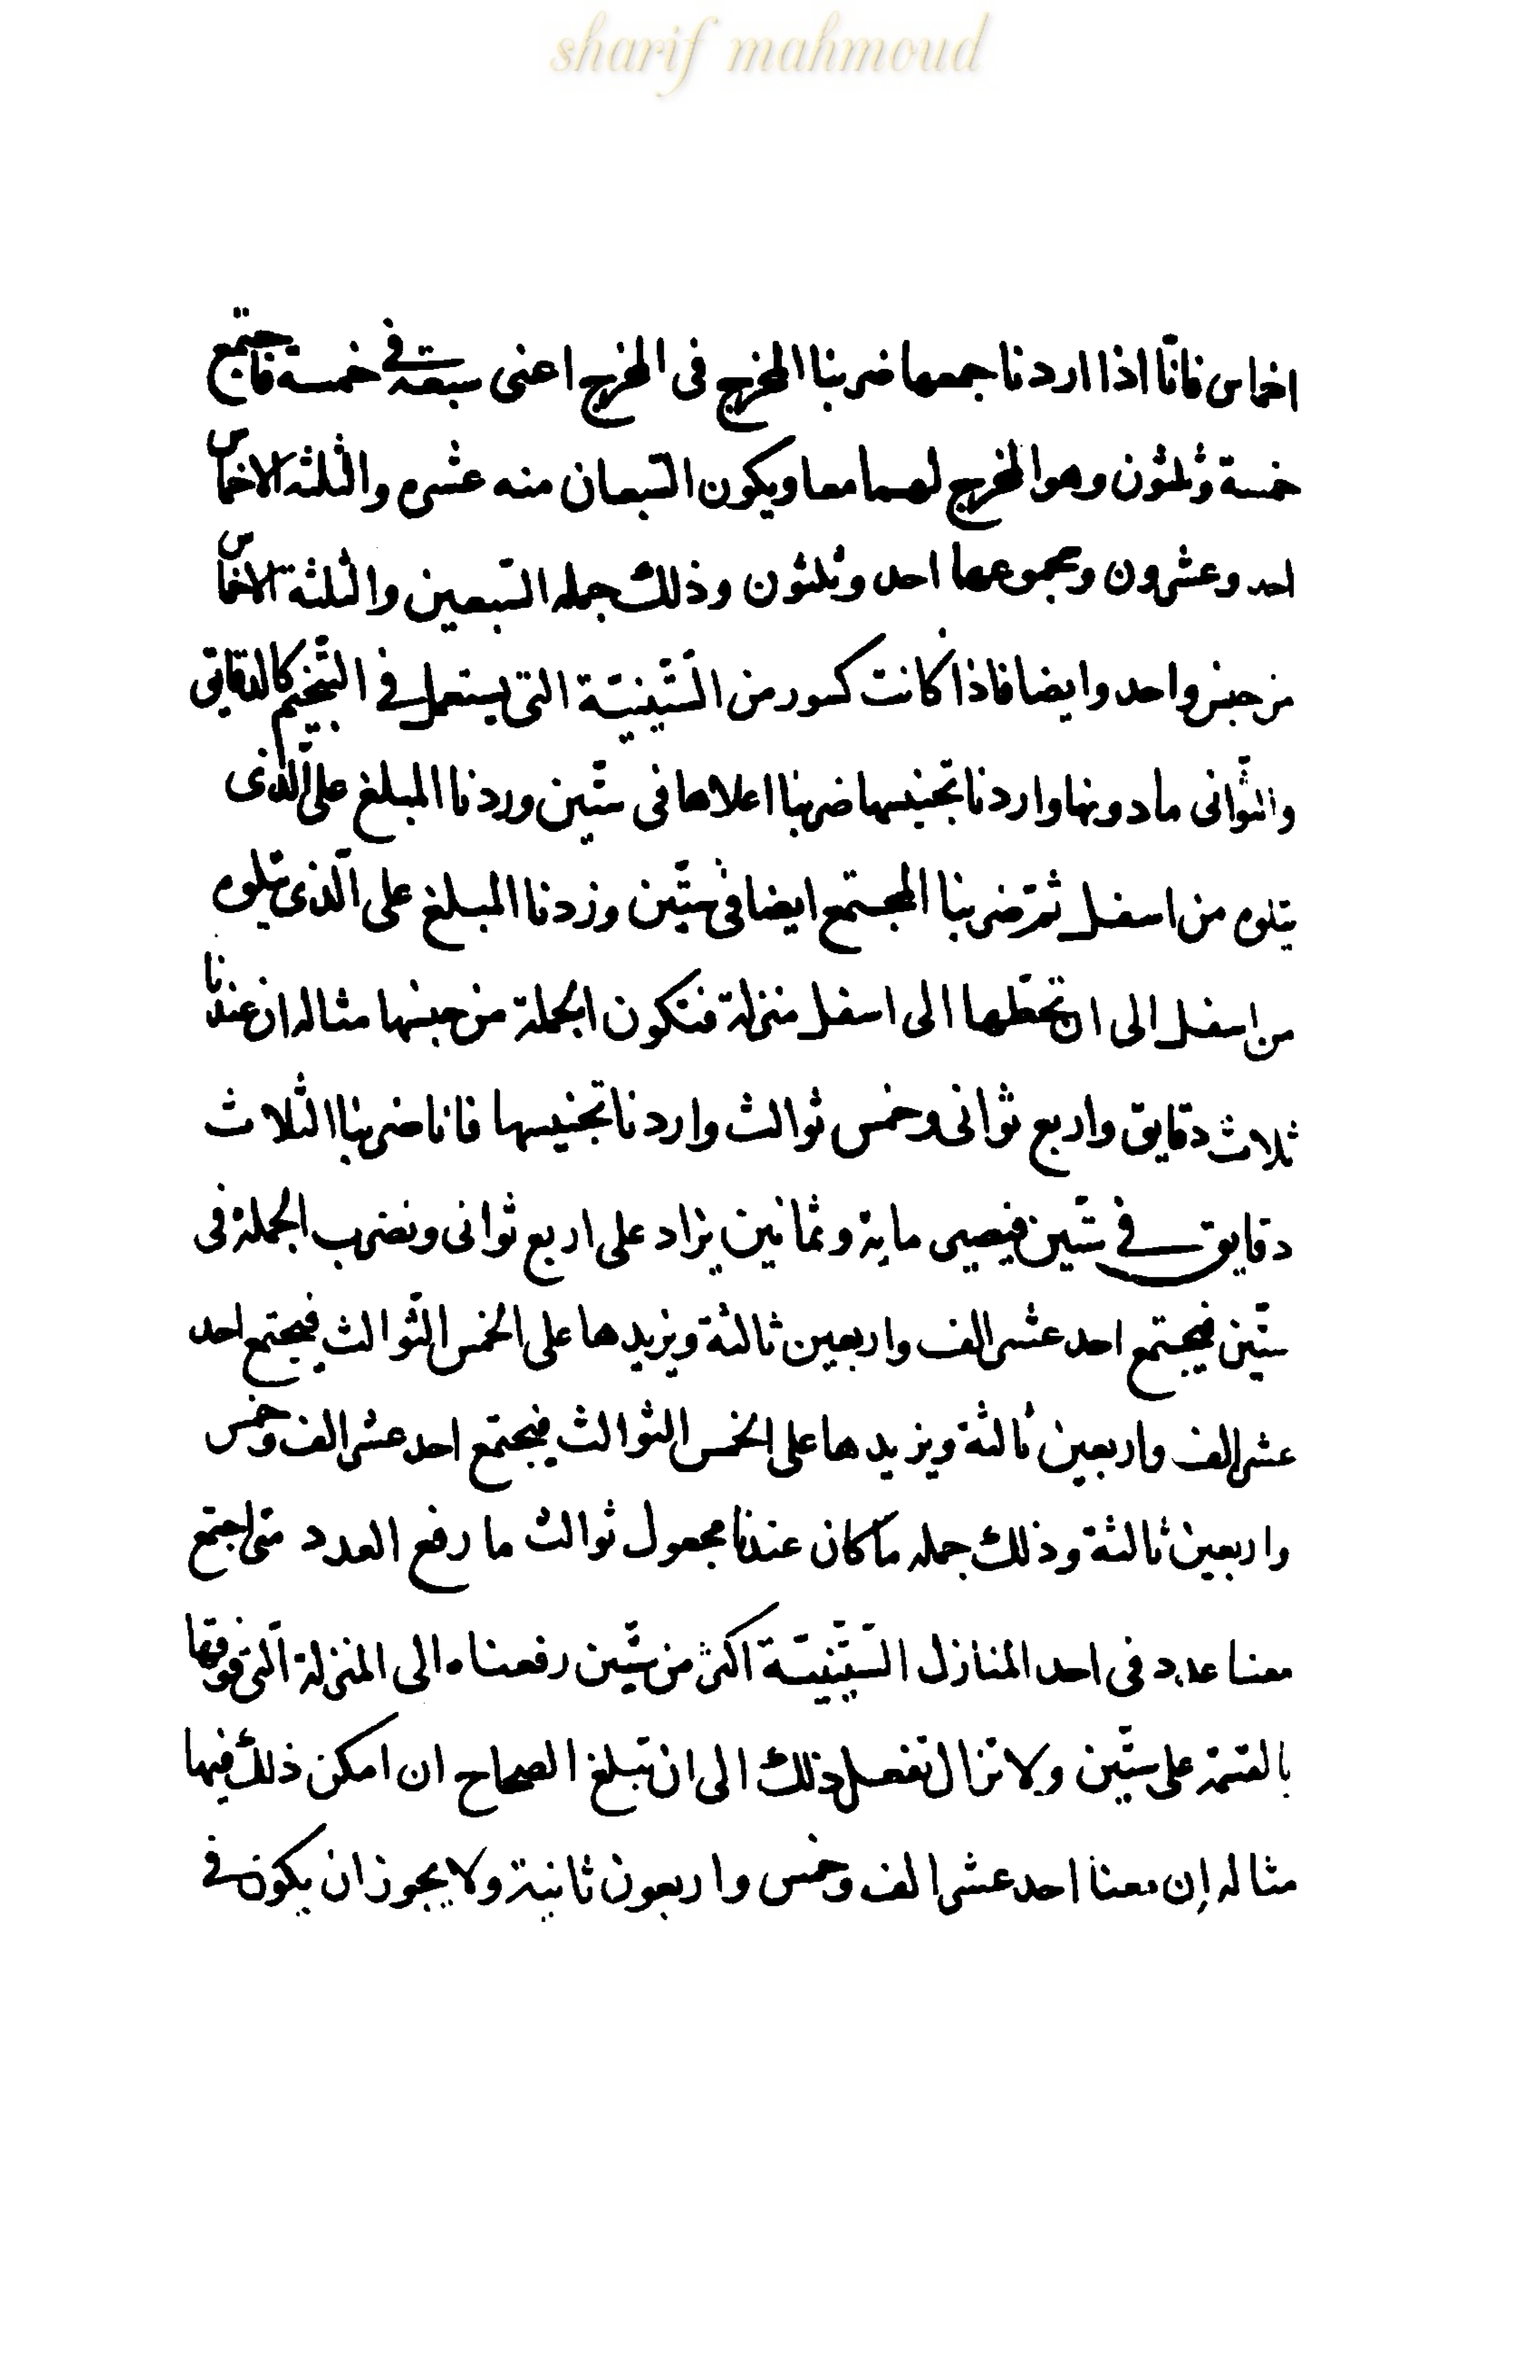 sharif mahmoud
اخماس فانّا اذا اردنا جمعها ضربنا المخرج فى المخرج اعنى سبعة فى خمسة فاجتمع
خمسة وثلثون وهو المخرج لهما معا ويكون السّبعان منه عشره والثلثة الاخماس
احد وعشرون ومجموعها احد وثلثون وذلك جمله السّبعين والثلثة الاخماس
من جنس واحد وايضا فاذا كانت كسور من السّتّينيّة التى يستعمل فى التّنجيم كالدقايق
والثّوانى مادونها واردنا تجنيسها ضربنا اعلاها فى ستّين وردنا المبلغ على الّذى
يتلوه من اسفل ثمّ ضربنا المجتمع ايضا فى ستّين وزدنا المبلغ على الّذى يتلوه
من اسفل الى ان تحطّها الى اسفل منزلة فتكون الجملة من جنسها مثاله ان عندنا
ثلاث دقايق واربع ثوانى وخمس ثوالث واردنا تجنيسها فانا ضربنا الثلاث
دقايق فى ستّين فيصيى ماية وثمانين يزاد على اربع ثوانى ونضرب الجملة فى
ستّين فيجتمع احد عشر الف واربعين ثالثة ويزيدها على الخمس الثّوالث فيجتمع احد
عشر الف واربعين ثالثة ويزيدها على الخمس الثوالث فيجتمع احد عشر الف وخمس
واربعين ثالثة وذلك جمله ما كان عندنا مجعول ثوالث ما رفع العدد متى اجتمع
معنا عدد فى احد المنازل السّتّينيّة اكثر من ستّين رفعناه الى المنزلة الّتى فوقها
بالقسمة على ستّين ولا تزال تفعل ذلك الى ان تبلغ الصحاح ان امكن ذلك فيها
مثاله إن معنا احد عشر الف وخمس واربعون ثانية ولا يجوز ان يكون فى